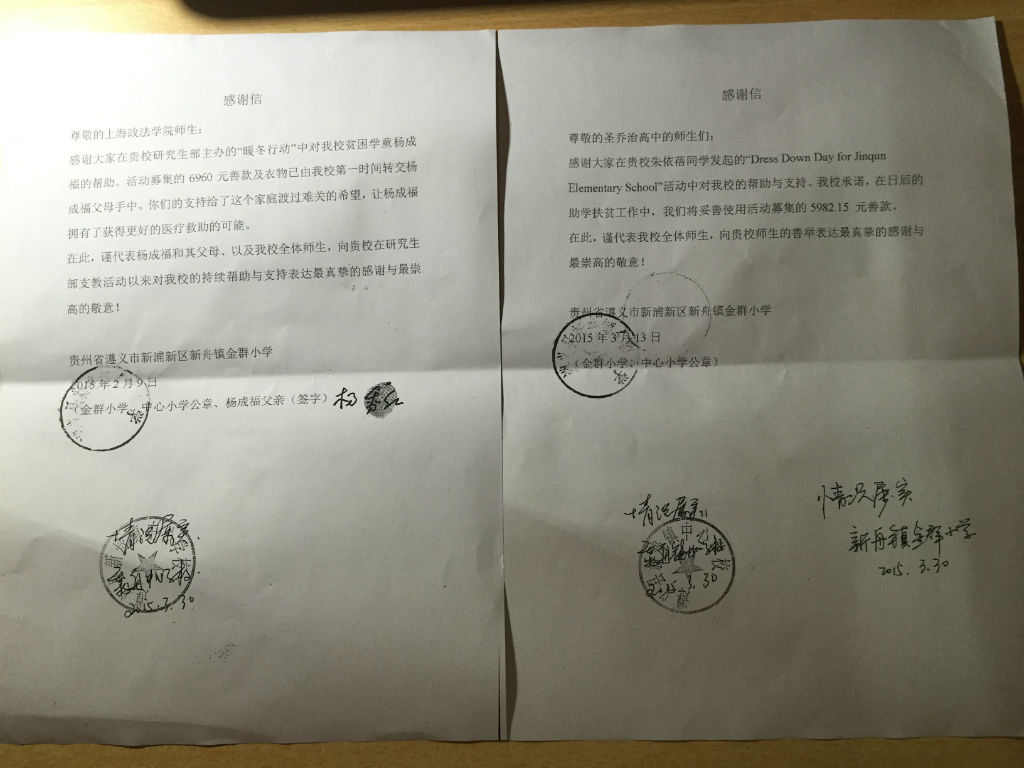 感谢信
尊敬的上海政法学院师生：
感谢大家在贵校研究生部主办的“暖冬行动”中对我校贫困学童杨成
福的帮助。活动募集的 6960 元善款及衣物已由我校第一时间转交杨
成福父母手中。你们的支持给了这个家庭渡过难关的希望，让杨成福
拥有了获得更好的医疗救助的可能。
在此，谨代表杨成福和其父母、以及我校全体师生，向贵校在研究生
部支教活动以来对我校的持续帮助与支持表达最真挚的感谢与最崇
高的敬意！
贵州省遵义市新浦新区新舟镇金群小学
2015 年 2 月 9 日
（金群小学、中心小学公章、杨成福父亲（签字）杨
情况属实
2015.3.30
感谢信
尊敬的圣乔治高中的师生们：
感谢大家在贵校朱依蓓同学发起的“Dress Down Day for Jinqun
Elementary School”活动中对我校的帮助与支持。我校承诺，在日后的
助学扶贫工作中，我们将妥善使用活动募集的 5982.15 元善款。
在此，谨代表我校全体师生，向贵校师生的善举表达最真挚的感谢与
最崇高的敬意！
贵州省遵义市新浦新区新舟镇金群小学
2015 年 3 月 13 日
（金群小学、中心小学公章）
情况属实
2015.3.30
情况属实
新舟镇金群小学
2015.3.30